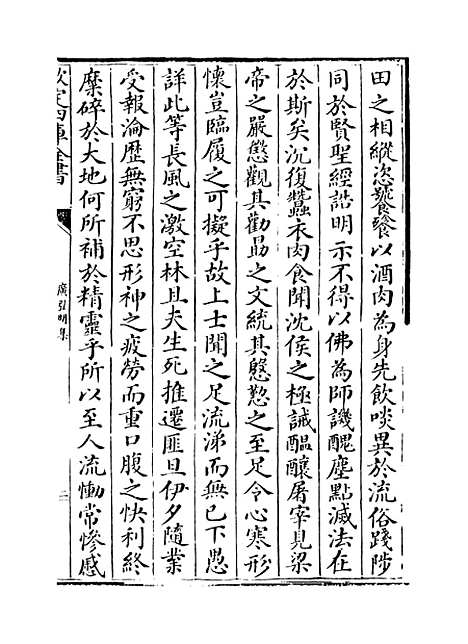 田之相縱恣饕餮以酒肉為身先飲啖異於流俗踐陟
同於賢聖經誥明示不得以佛為師譏醜塵點滅法在
於斯矣況復蠶衣肉食聞沈侯之極誡醞釀屠宰見梁
帝之嚴懲觀其勸勗之文統其慇懃之至足令心寒形
懷豈臨履之可擬乎故上士聞之足流涕而無已下愚
詳此等長風之激空林且夫生死推遷匪旦伊夕隨業
受報淪歷無窮不思形神之疲勞而重口腹之快利終
糜碎於大地何所補於精靈乎所以至人流慟常慘慼
欽定四庫全書
廣弘明集